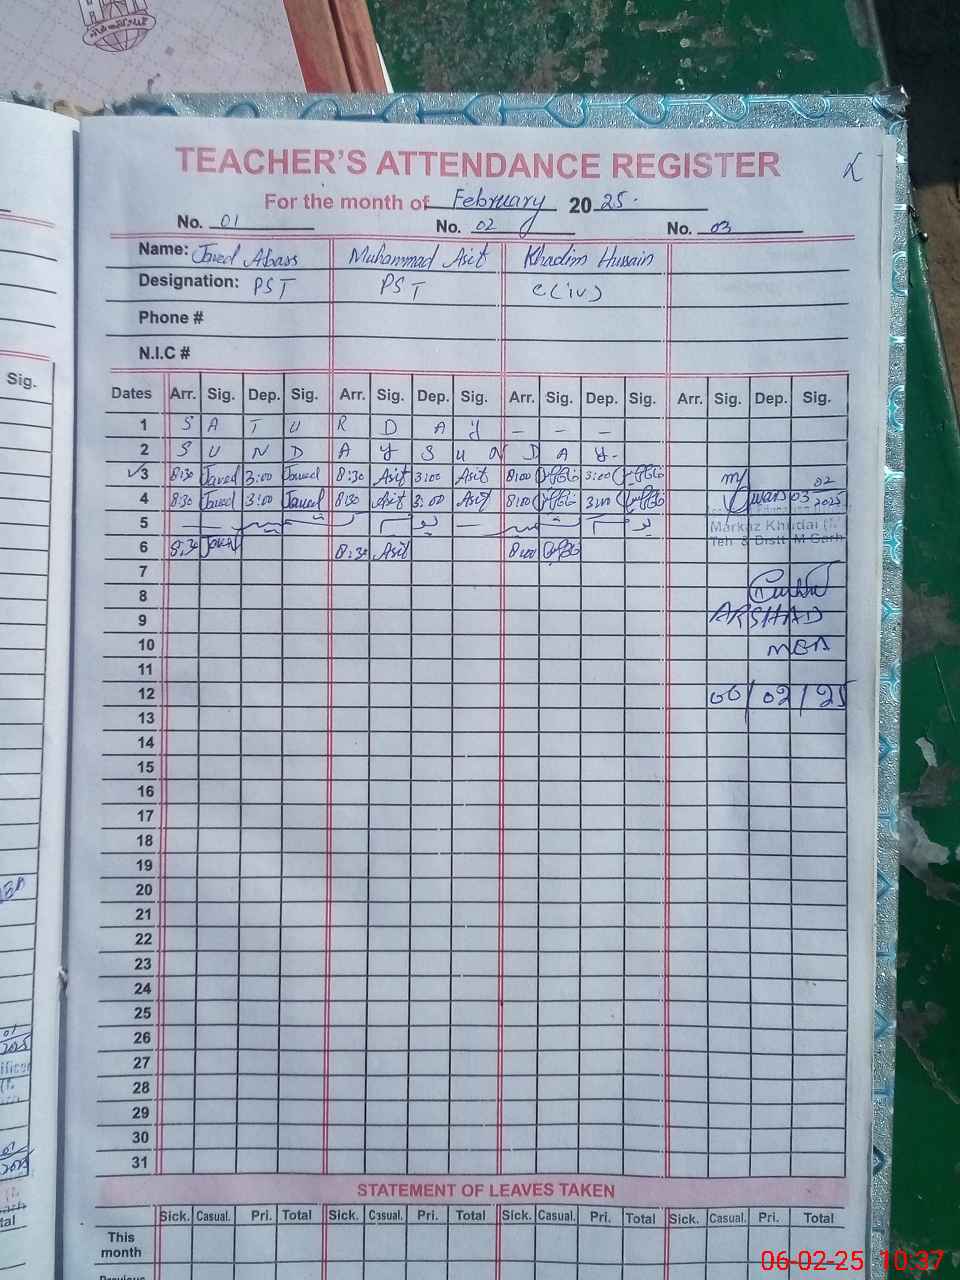 TEACHER'S ATTENDANCE REGISTER
For the month of February 20 25.
No. 01 No. 02 No. 03
Name: Javed Abass Muhammad Asif Khadim Hussain
Designation: PST PST C(iv)
Phone #
N.I.C #
Sig.
Dates Arr. Sig. Dep. Sig. Arr. Sig. Dep. Sig. Arr. Sig. Dep. Sig. Arr. Sig. Dep. Sig.
1 S A T U R D A Y - - -
2 S U N D A Y S U N D A Y.
3 8:30 Javed 3:00 Javed 8:30 Asif 3:00 Asif 8:00 3:00
4 8:30 Javed 3:00 Javed 8:30 Asif 3:00 Asif 8:00 3:00 03 02 2025
5
Markaz Khudai
6 8:30 Javed 8:30 Asif 8:00
Teh & Distt M Garh
7
8
9 ARSHAD
10 MEA
11
12 06/02/25
13
14
15
16
17
18
19
20
21
22
23
24
25
26
27
28
29
30
31
STATEMENT OF LEAVES TAKEN
Sick. Casual. Pri. Total Sick. Casual. Pri. Total Sick. Casual. Pri. Total Sick. Casual. Pri. Total
This month
06-02-25 10:37